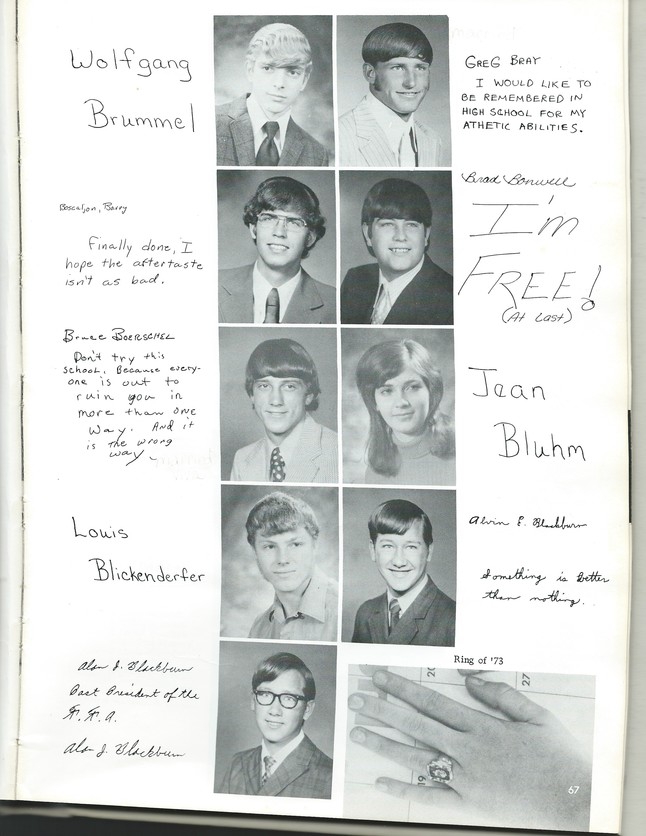 Wolfgang
Brummel
GREG BRAY
I WOULD LIKE TO
BE REMEMBERED IN
HIGH SCHOOL FOR MY
ATHETIC ABILITIES.
Boscaljon, Barry
Finally done, I
hope the aftertaste
isn't as bad.
Brad Bonwell
I'm
FREE!
(At Last)
Bruce BOERSCHEL
Don't try this
school. Because every-
one is out to
ruin you in
more than ONE
way. And it
is the wrong
way.
Jean
Bluhm
Louis
Blickenderfer
Alvin E. Blackburn
Something is better
than nothing.
Alan J. Blackburn
Past President of the
F.F.A.
Alan J. Blackburn
Ring of '73
20
27
19
67